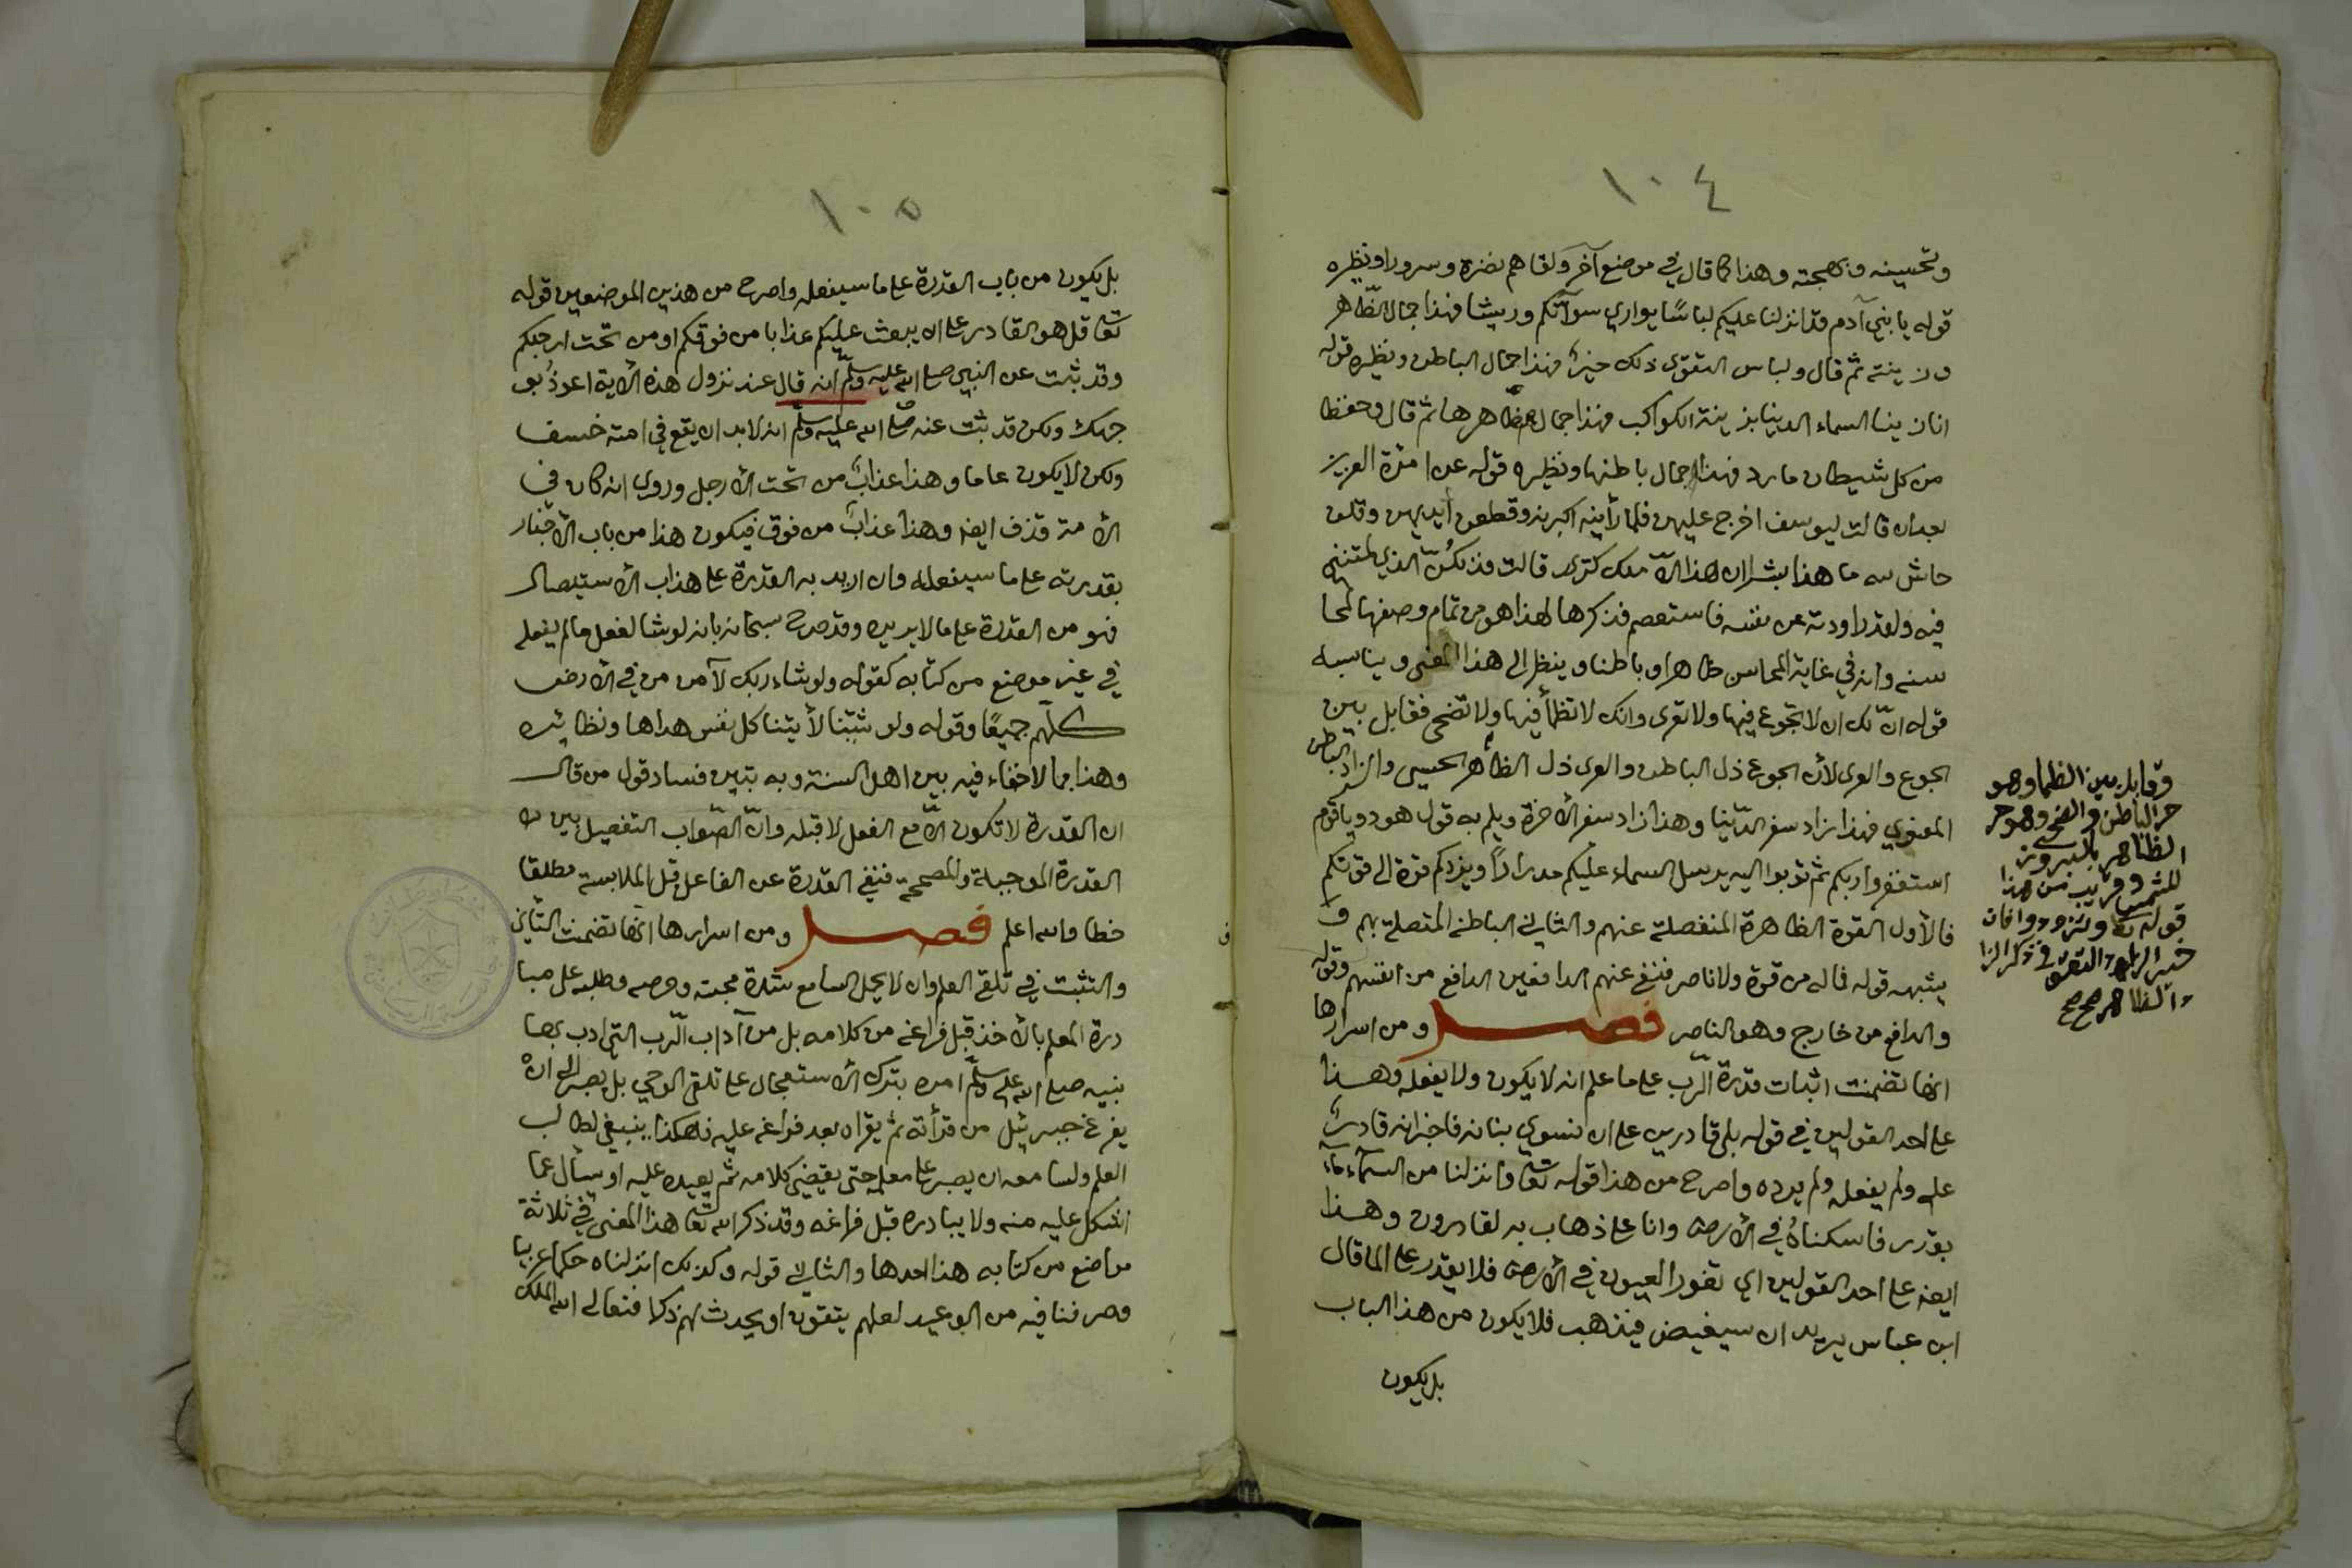 ١٠٤
وتحسينه وبهجته وهذا كما قال في موضع آخر ولقاهم نضرة وسرورا ونظيره
قوله يا بني آدم قد انزلنا عليكم لباسًا يواري سوآتكم وريشا فهذا جمال الظّاهر
وزينته ثم قال ولباس التقوى ذلك خيرٌ فهذا جمال الباطن ونظيره قوله
انا زينا السماء الدينا بزينة الكواكب فهذا جمال ظاهرها ثم قال وحفظا
من كل شيطان مارد فهذا جمال باطنها ونظيره قوله عن امرة العزيز
بعد ان قالت ليوسف اخرج عليهن فلما رأينه اكبرنه وقطعن أيديهن وقلن
حاش لله ما هذا بشرا ان هذا الّا ملك كريم قالت فذلكنّ الذي لمتنني
فيه ولقد راودته عن نفسه فاستعصم فذكرها لهذا هو من تمام وصفها لمحا
سنه وانه في غاية المحاسن ظاهرا وباطنا وينظر الى هذا المعنى ويناسبه
قوله انّ لك ان لا تجوع فيها ولا تعرى وانك لا تظمأ فيها ولا تضحى فقابل بين
الجوع والعرى لأن الجوع ذل الباطن والعرى ذل الظاهر الحسي والزاد الباطن
المعنوي فهذا زاد سفر الدّنيا وهذا زاد سفر الأخرة ويلم به قول هود ويا قوم
استغفروا ربكم ثم توبوا اليه يرسل السماء عليكم مدرارًا ويزدكم قوة الى قوتكم
فالأول القوة الظاهرة المنفصلة عنهم والثاني الباطنة المتصلة بهم و
يشبهه قوله فما له من قوة ولا ناصر فنفى عنهم الدافعين الدافع من انفسهم وقوله
والدافع من خارج وهو الناصر فصل ومن اسرارها
انها تضمنت اثبات قدرة الّرب على ما علم انه لا يكون ولا يفعله وهذا
على احد القولين في قوله بلى قادرين على ان نسوي بنانه فاخبر انه قادرٌ
عليه ولم يفعله ولم يرده واصرح من هذا قوله تعا وانزلنا من السمآء مآء
بقدر فاسكناهُ في الأرض وانا على ذهاب به لقادرون وهذا
ايضا على احد القولين اي تغور العيون في الأرض فلا يقدر على الما قال
ابن عباس يريد ان سيغيض فيذهب فلا يكون من هذا الباب
بل يكون
وقابل بين الظما وهو
حر الباطن والضحى وهو حر
الظاهر بالبروز
للشمس وقريب من هذا
قوله تعا وتزودوا فان
خير الزاد التقوى فذكر الزا
د الظاهر صح صح
١٠٥
بل يكون من باب القدرة على ما سيفعله واصرح من هذين الموضعين قوله
تعا قل هو القادر على ان يبعث عليكم عذابا من فوقكم او من تحت ارجلكم
وقد ثبت عن النبي صلى الله عليه وسلّم انه قال عند نزول هذه الآية اعوذُ بو
جهك ولكن قد ثبت عنه صلى الله عليه وسلم انه لا بد ان يقع في امته خسف
ولكن لا يكون عاما وهذا عذابٌ من تحت الأرجل وروي انه كان في
الأمة قذف ايضا وهذا عذابٌ من فوق فيكون هذا من باب الأخبار
بقدرته على ما سيفعله وان اريد به القدرة على هذاب الأستيصال
فهو من القدرة على ما لا يريده وقد صرح سبحانه بانه لو شا لفعل ما لم يفعله
في غير موضع من كتابه كقوله ولو شاء ربك لآمن من في الأرض
كلّهم جميعًا وقوله ولو شئنا لأتينا كل نفس هداها ونظائره
وهذا مما لا خفاء فيه بين اهل السنة وبه تبين فساد قول من قال
ان القدرة لا تكون الّا مع الفعل لا قبله وانّ الصّواب التفصيل بين
القدرة الموجبة والمصححة فنفي القدرة عن الفاعل قبل الملابسة مطلقا
خطا والله اعلم فصل ومن اسرارها انها تضمنت التأني
والتثبت في تلقي العلم وان لا يحمل السامع شدة محبته وحرصه وطلبه على مبا
درة المعلم بالأخذ قبل فراغه من كلامه بل من آداب الّرب التي ادب بها
نبيه صلى الله عليه وسلّم امره بترك الأستعجال على تلقى الوحي بل يصبر الى ان
يفرغ جبرئيل من قرأته ثم يقراه بعد فراغه عليه فهكذا ينبغي لطالب
العلم ولسامعه ان يصبر على معلمه حتى يقضي كلامه ثم يعيده عليه او يسأل عما
اشكل عليه منه ولا يبادره قبل فراغه وقد ذكر الله تعا هذا المعنى في ثلاثة
مواضع من كتابه هذا احدها والثاني قوله وكذلك انزلناه حكما عربيا
وصرفنا فيه من الوعيد لعلهم يتقون او يحدث لهم ذكرا فتعالى الله الملك